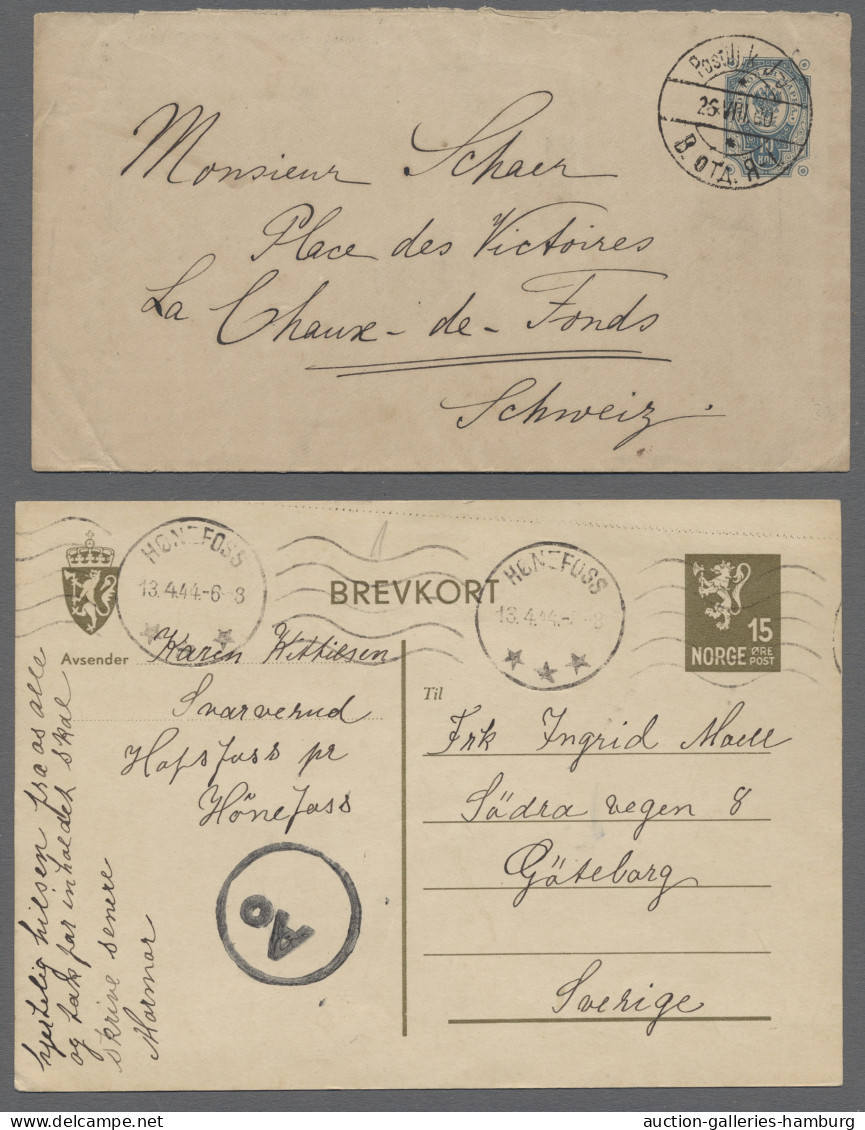 Monsieur Schaer
Place des Victoires
La Chaux-de-Fonds
Schweiz.
26.VIII.
В. ОТД. Я
HØNEFOSS
13.4.44.-6-8
BREVKORT
HØNEFOSS
13.4.44.-6-8
15
NORGE ØRE
POST
Avsender Karen Wittilsen
Svarverud
Hofsfoss pr
Hönefoss
Ao
hjertelig hilsen fra os alle
og takk for inholdet skal
skrive senere
Mormor
Til
Frk Ingrid Moell
Södra vegen 8
Göteborg
Sverige
auction-galleries-hamburg